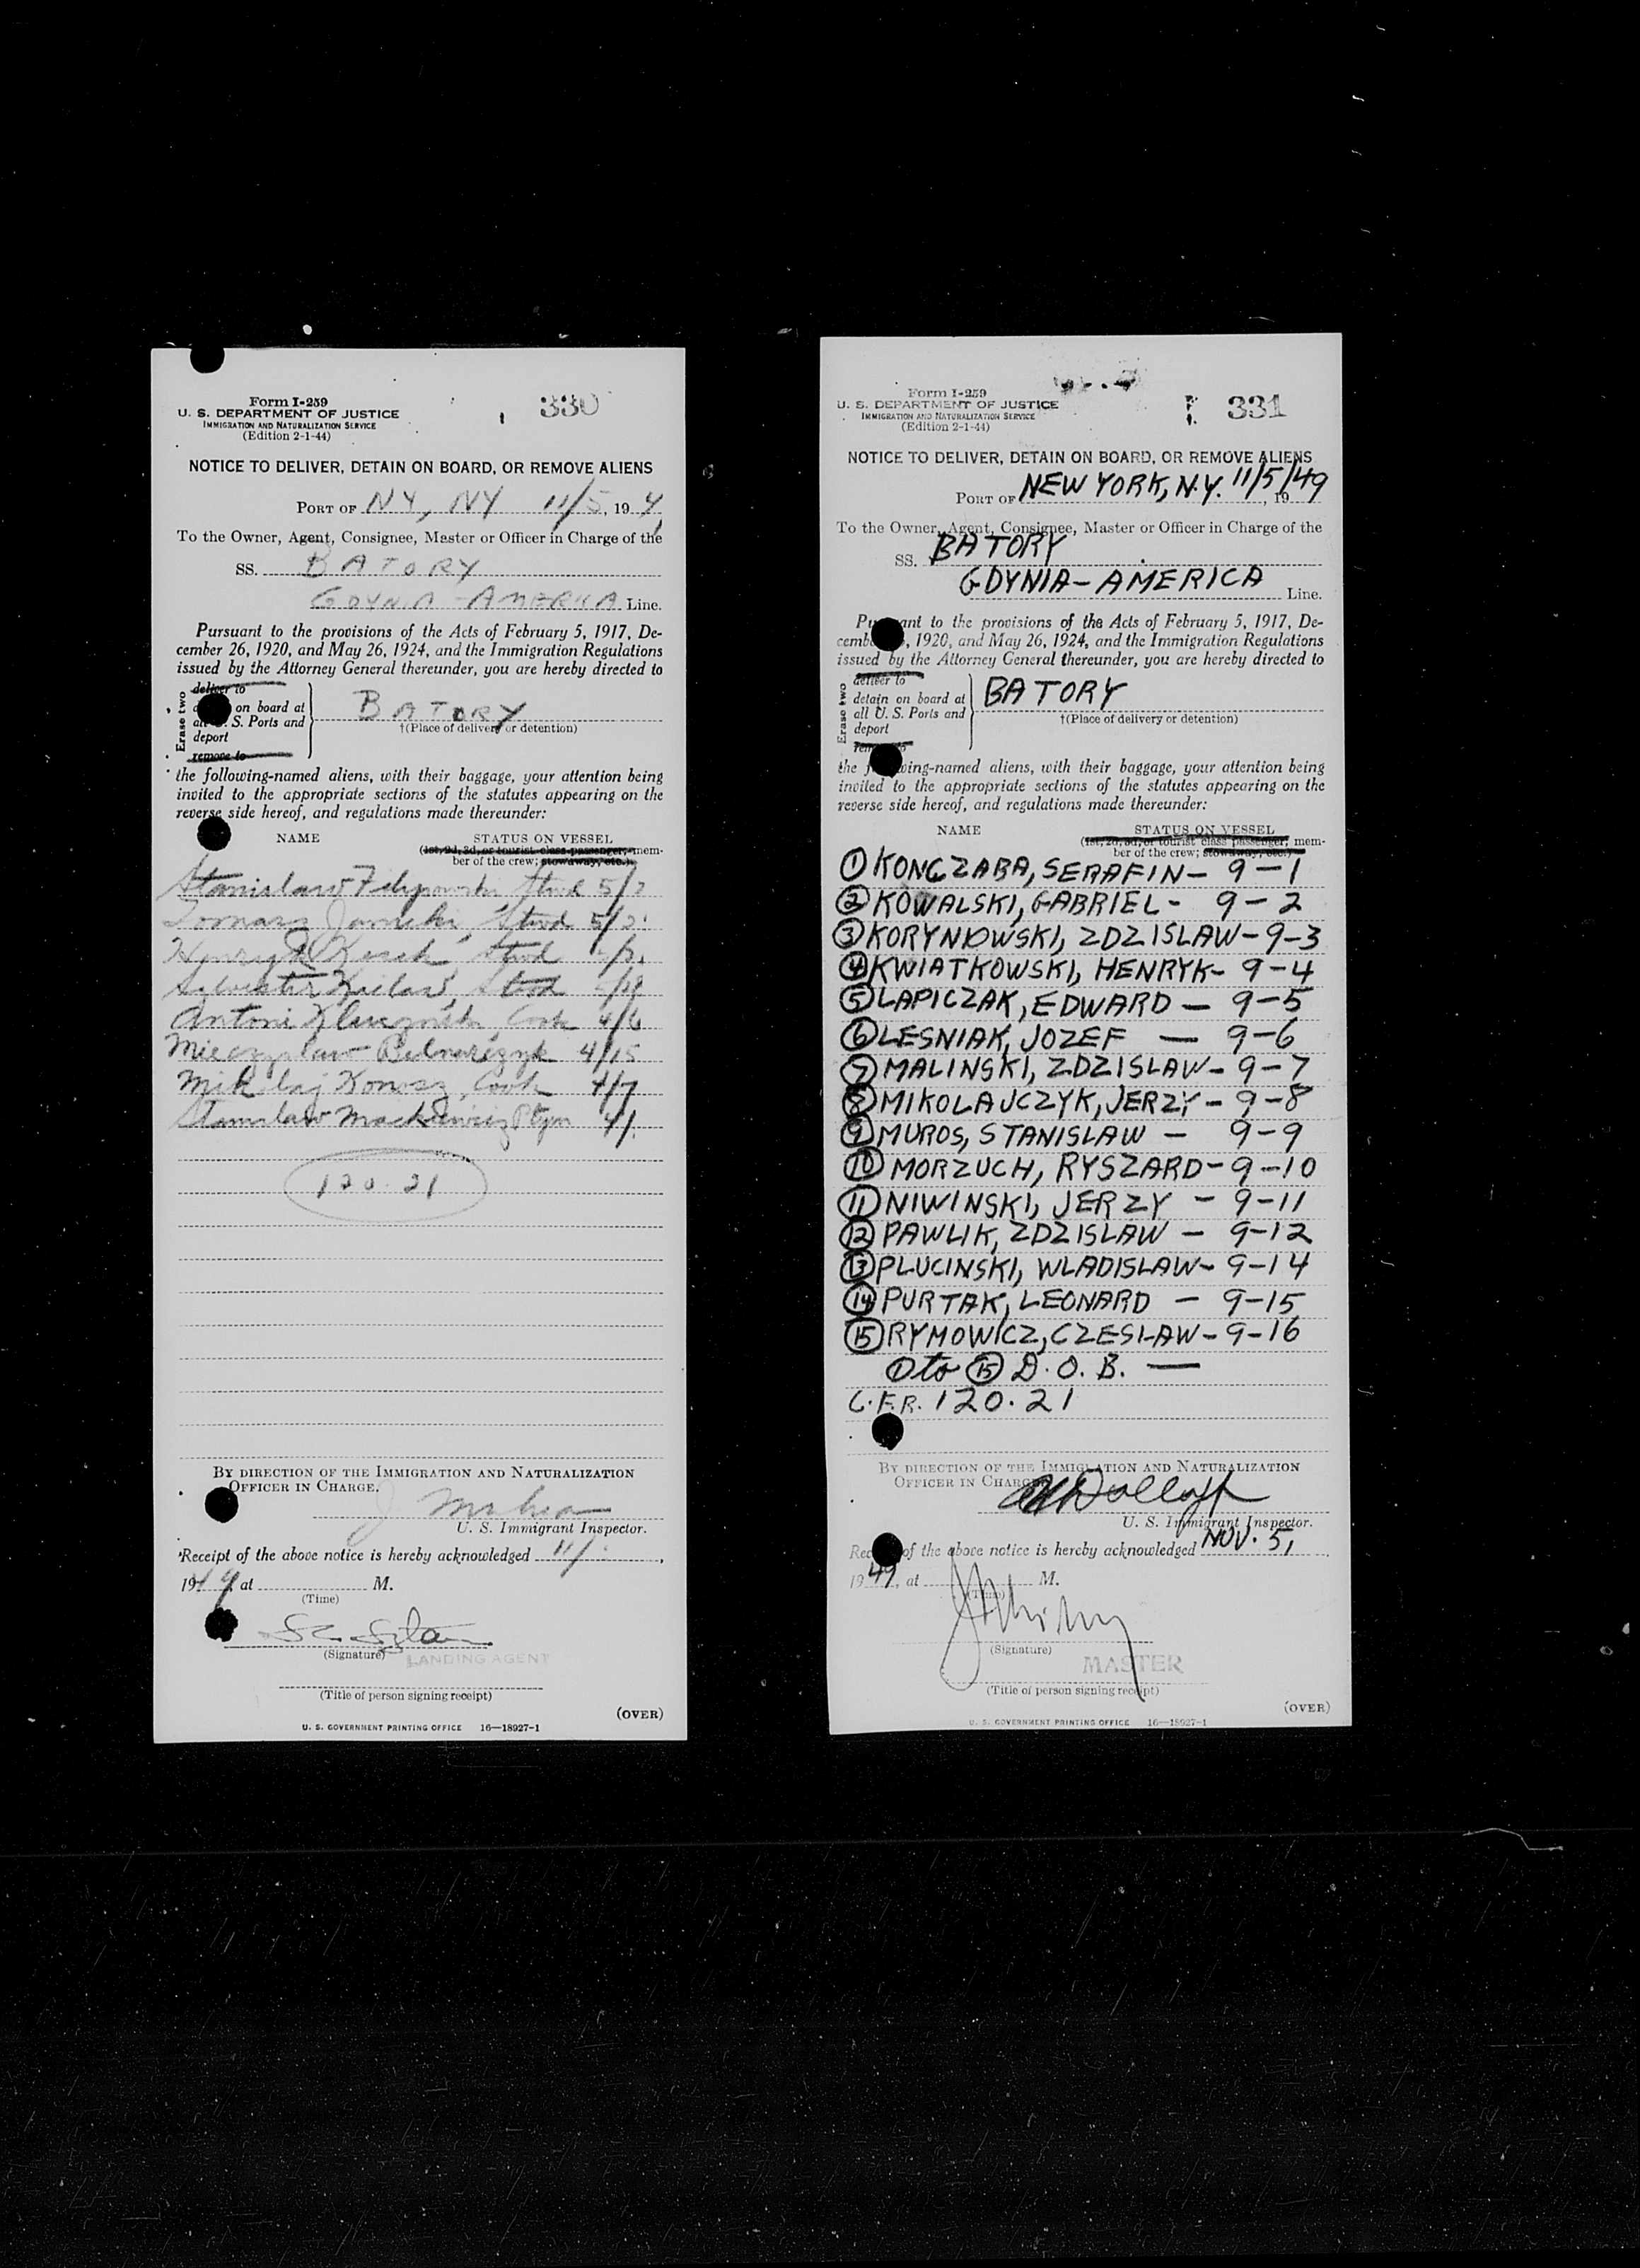 Form I-259
U. S. DEPARTMENT OF JUSTICE
IMMIGRATION AND NATURALIZATION SERVICE
(Edition 2-1-44)
330
NOTICE TO DELIVER, DETAIN ON BOARD, OR REMOVE ALIENS
PORT OF NY, NY 11/5, 19 4
To the Owner, Agent, Consignee, Master or Officer in Charge of the
SS. BATORY
GDYNIA-AMERICA Line.
Pursuant to the provisions of the Acts of February 5, 1917, De-
cember 26, 1920, and May 26, 1924, and the Immigration Regulations
issued by the Attorney General thereunder, you are hereby directed to
Erase two
deliver to
on board at
S. Ports and
deport
remove to
BATORY
†(Place of delivery or detention)
the following-named aliens, with their baggage, your attention being
invited to the appropriate sections of the statutes appearing on the
reverse side hereof, and regulations made thereunder:
NAME STATUS ON VESSEL
(1st, 2d, 3d, or tourist class passenger; mem-
ber of the crew; stowaway, etc.)
Stanislaw
Stwd
Stwd
Antoni Cook 4/6
Mieczyslaw Bednarczyk 4/15
Mikolaj Konosz, Cook 4/7
Stanislaw
120.21
BY DIRECTION OF THE IMMIGRATION AND NATURALIZATION
OFFICER IN CHARGE.
U. S. Immigrant Inspector.
Receipt of the above notice is hereby acknowledged 11/
19 at M.
(Time)
(Signature) LANDING AGENT
(Title of person signing receipt)
(OVER)
U. S. GOVERNMENT PRINTING OFFICE 16—18927-1
Form I-259
U. S. DEPARTMENT OF JUSTICE
IMMIGRATION AND NATURALIZATION SERVICE
(Edition 2-1-44)
331
NOTICE TO DELIVER, DETAIN ON BOARD, OR REMOVE ALIENS
PORT OF NEW YORK, N.Y. 11/5/49, 19
To the Owner, Agent, Consignee, Master or Officer in Charge of the
SS. BATORY
GDYNIA-AMERICA Line.
Pursuant to the provisions of the Acts of February 5, 1917, De-
cember, 1920, and May 26, 1924, and the Immigration Regulations
issued by the Attorney General thereunder, you are hereby directed to
Erase two
deliver to
detain on board at
all U. S. Ports and
deport
BATORY
†(Place of delivery or detention)
the following-named aliens, with their baggage, your attention being
invited to the appropriate sections of the statutes appearing on the
reverse side hereof, and regulations made thereunder:
NAME STATUS ON VESSEL
(1st, 2d, 3d, or tourist class passenger; mem-
ber of the crew; stowaway, etc.)
① KONCZABA, SERAFIN - 9-1
② KOWALSKI, GABRIEL - 9-2
③ KORYNOWSKI, ZDZISLAW - 9-3
④ KWIATKOWSKI, HENRYK - 9-4
⑤ LAPICZAK, EDWARD - 9-5
⑥ LESNIAK, JOZEF - 9-6
⑦ MALINSKI, ZDZISLAW - 9-7
⑧ MIKOLAJCZYK, JERZY - 9-8
⑨ MUROS, STANISLAW - 9-9
⑩ MORZUCH, RYSZARD - 9-10
⑪ NIWINSKI, JERZY - 9-11
⑫ PAWLIK, ZDZISLAW - 9-12
⑬ PLUCINSKI, WLADISLAW - 9-14
⑭ PURTAK, LEONARD - 9-15
⑮ RYMOWICZ, CZESLAW - 9-16
① to ⑮ D.O.B. —
C.F.R. 120.21
BY DIRECTION OF THE IMMIGRATION AND NATURALIZATION
OFFICER IN CHARGE
U. S. Immigrant Inspector.
of the above notice is hereby acknowledged NOV. 5,
1949, at M.
(Time)
(Signature)
MASTER
(Title of person signing receipt)
(OVER)
U. S. GOVERNMENT PRINTING OFFICE 16—18927-1